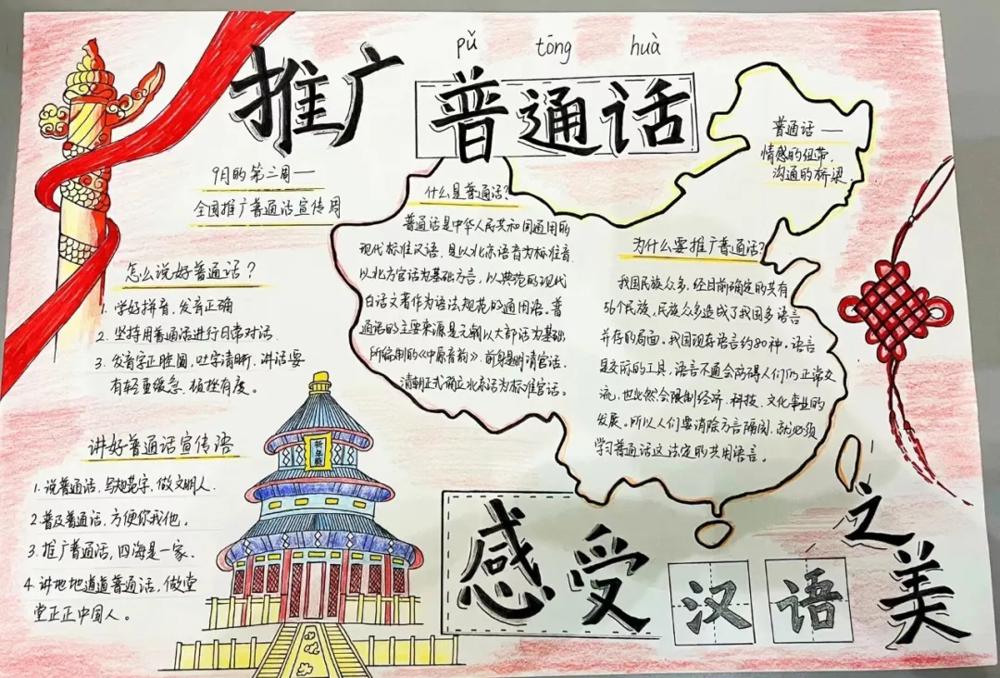 pǔ tōng huà
推广普通话
9月的第三周—
全国推广普通话宣传周
怎么说好普通话？
1. 学好拼音,发音正确
2. 坚持用普通话进行日常对话.
3. 发音字正腔圆,吐字清晰,讲话要
有轻重缓急、顿挫有度。
讲好普通话宣传语
1. 说普通话,写规范字,做文明人.
2. 普及普通话,方便你我他。
3. 推广普通话,四海是一家.
4. 讲地地道道普通话,做堂
堂正正中国人。
什么是普通话?
普通话是中华人民共和国通用的
现代标准汉语,是以北京语音为标准音,
以北方官话为基础方言,以典范的现代
白话文著作为语法规范的通用语。普
通话的主要来源是元朝以大都话为基础
所绘制的《中原音韵》.前身是明清官话。
清朝正式确立北京话为标准官话。
普通话——
情感的纽带,
沟通的桥梁.
为什么要推广普通话?
我国民族众多,经目前确定的共有
56个民族,民族众多造成了我国多语言
并存的局面,我国现存语言约80种。语言
是交际的工具,语言不通会妨碍人们的正常交
流,也必然会限制经济、科技、文化事业的
发展。所以人们要消除方言隔阂,就必须
学习普通话这法定的共用语言。
祈年殿
感受汉语之美